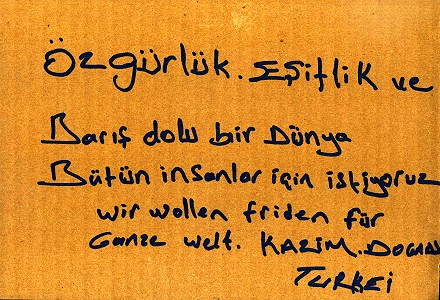 Özgürlük. Eşitlik ve
Barış dolu bir Dünya
Bütün insanlar için istiyoruz
wir wollen friden für
Ganze welt. KAZIM. DOGAN
TURKEI